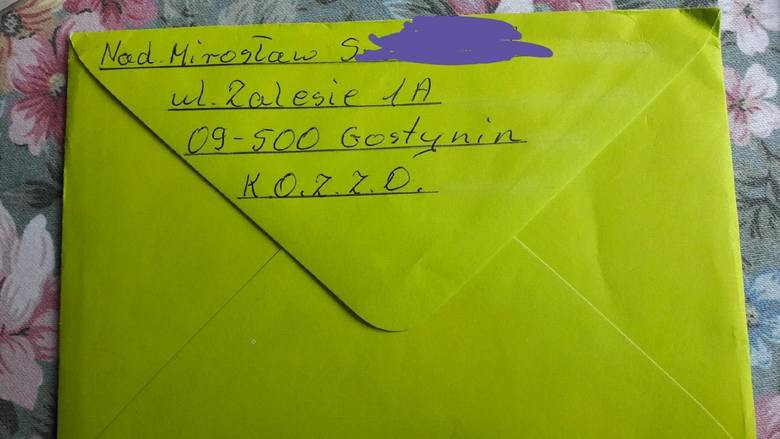 Nad. Mirosław S.
ul. Zalesie 1A
09-500 Gostynin
K.O.Z.Z.D.